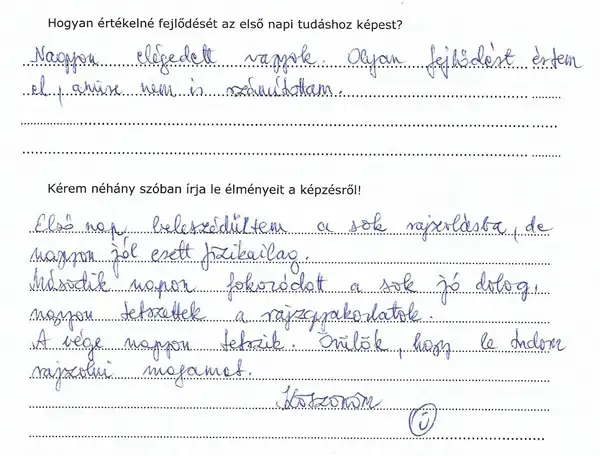 Hogyan értékelné fejlődését az első napi tudáshoz képest?
Nagyon elégedett vagyok. Olyan fejlődést értem
el, amire nem is számítottam.
Kérem néhány szóban írja le élményeit a képzésről!
Első nap beleszédültem a sok rajzolásba, de
nagyon jól esett fizikailag.
Második napon fokozódott a sok jó dolog,
nagyon tetszettek a rajzgyakorlatok.
A vége nagyon tetszik. Örülök, hogy le tudom
rajzolni magamat.
Köszönöm